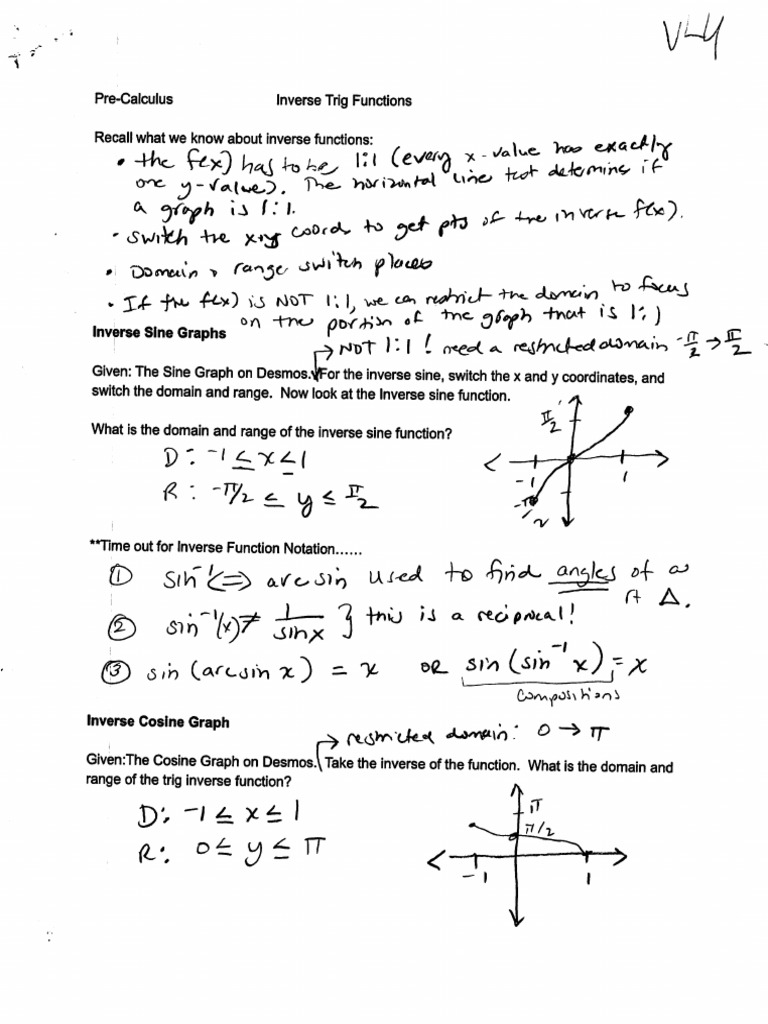 V-4
Pre-Calculus Inverse Trig Functions
Recall what we know about inverse functions:
• the f(x) has to be 1:1 (every x-value has exactly
one y-value). The horizontal line test determins if
a graph is 1:1.
• switch the x+y coords to get pts of the inverse f(x).
• Domain & range switch places
• If the f(x) is NOT 1:1, we can restrict the domain to focus
on the portion of the graph that is 1:1
Inverse Sine Graphs
→ NOT 1:1! need a restricted domain -π/2 → π/2
Given: The Sine Graph on Desmos. For the inverse sine, switch the x and y coordinates, and
switch the domain and range. Now look at the Inverse sine function.
What is the domain and range of the inverse sine function?
D: -1 ≤ x ≤ 1
R: -π/2 ≤ y ≤ π/2
π/2
-1 1
-π/2
**Time out for Inverse Function Notation……
① sin⁻¹ <=> arcsin used to find angles of a
rt Δ.
② sin⁻¹(x) ≠ 1/sinx } this is a reciprocal!
③ sin(arcsin x) = x OR sin(sin⁻¹x) = x
compositions
Inverse Cosine Graph
→ restricted domain: 0 → π
Given:The Cosine Graph on Desmos. Take the inverse of the function. What is the domain and
range of the trig inverse function?
D: -1 ≤ x ≤ 1
R: 0 ≤ y ≤ π
π
π/2
-1 1